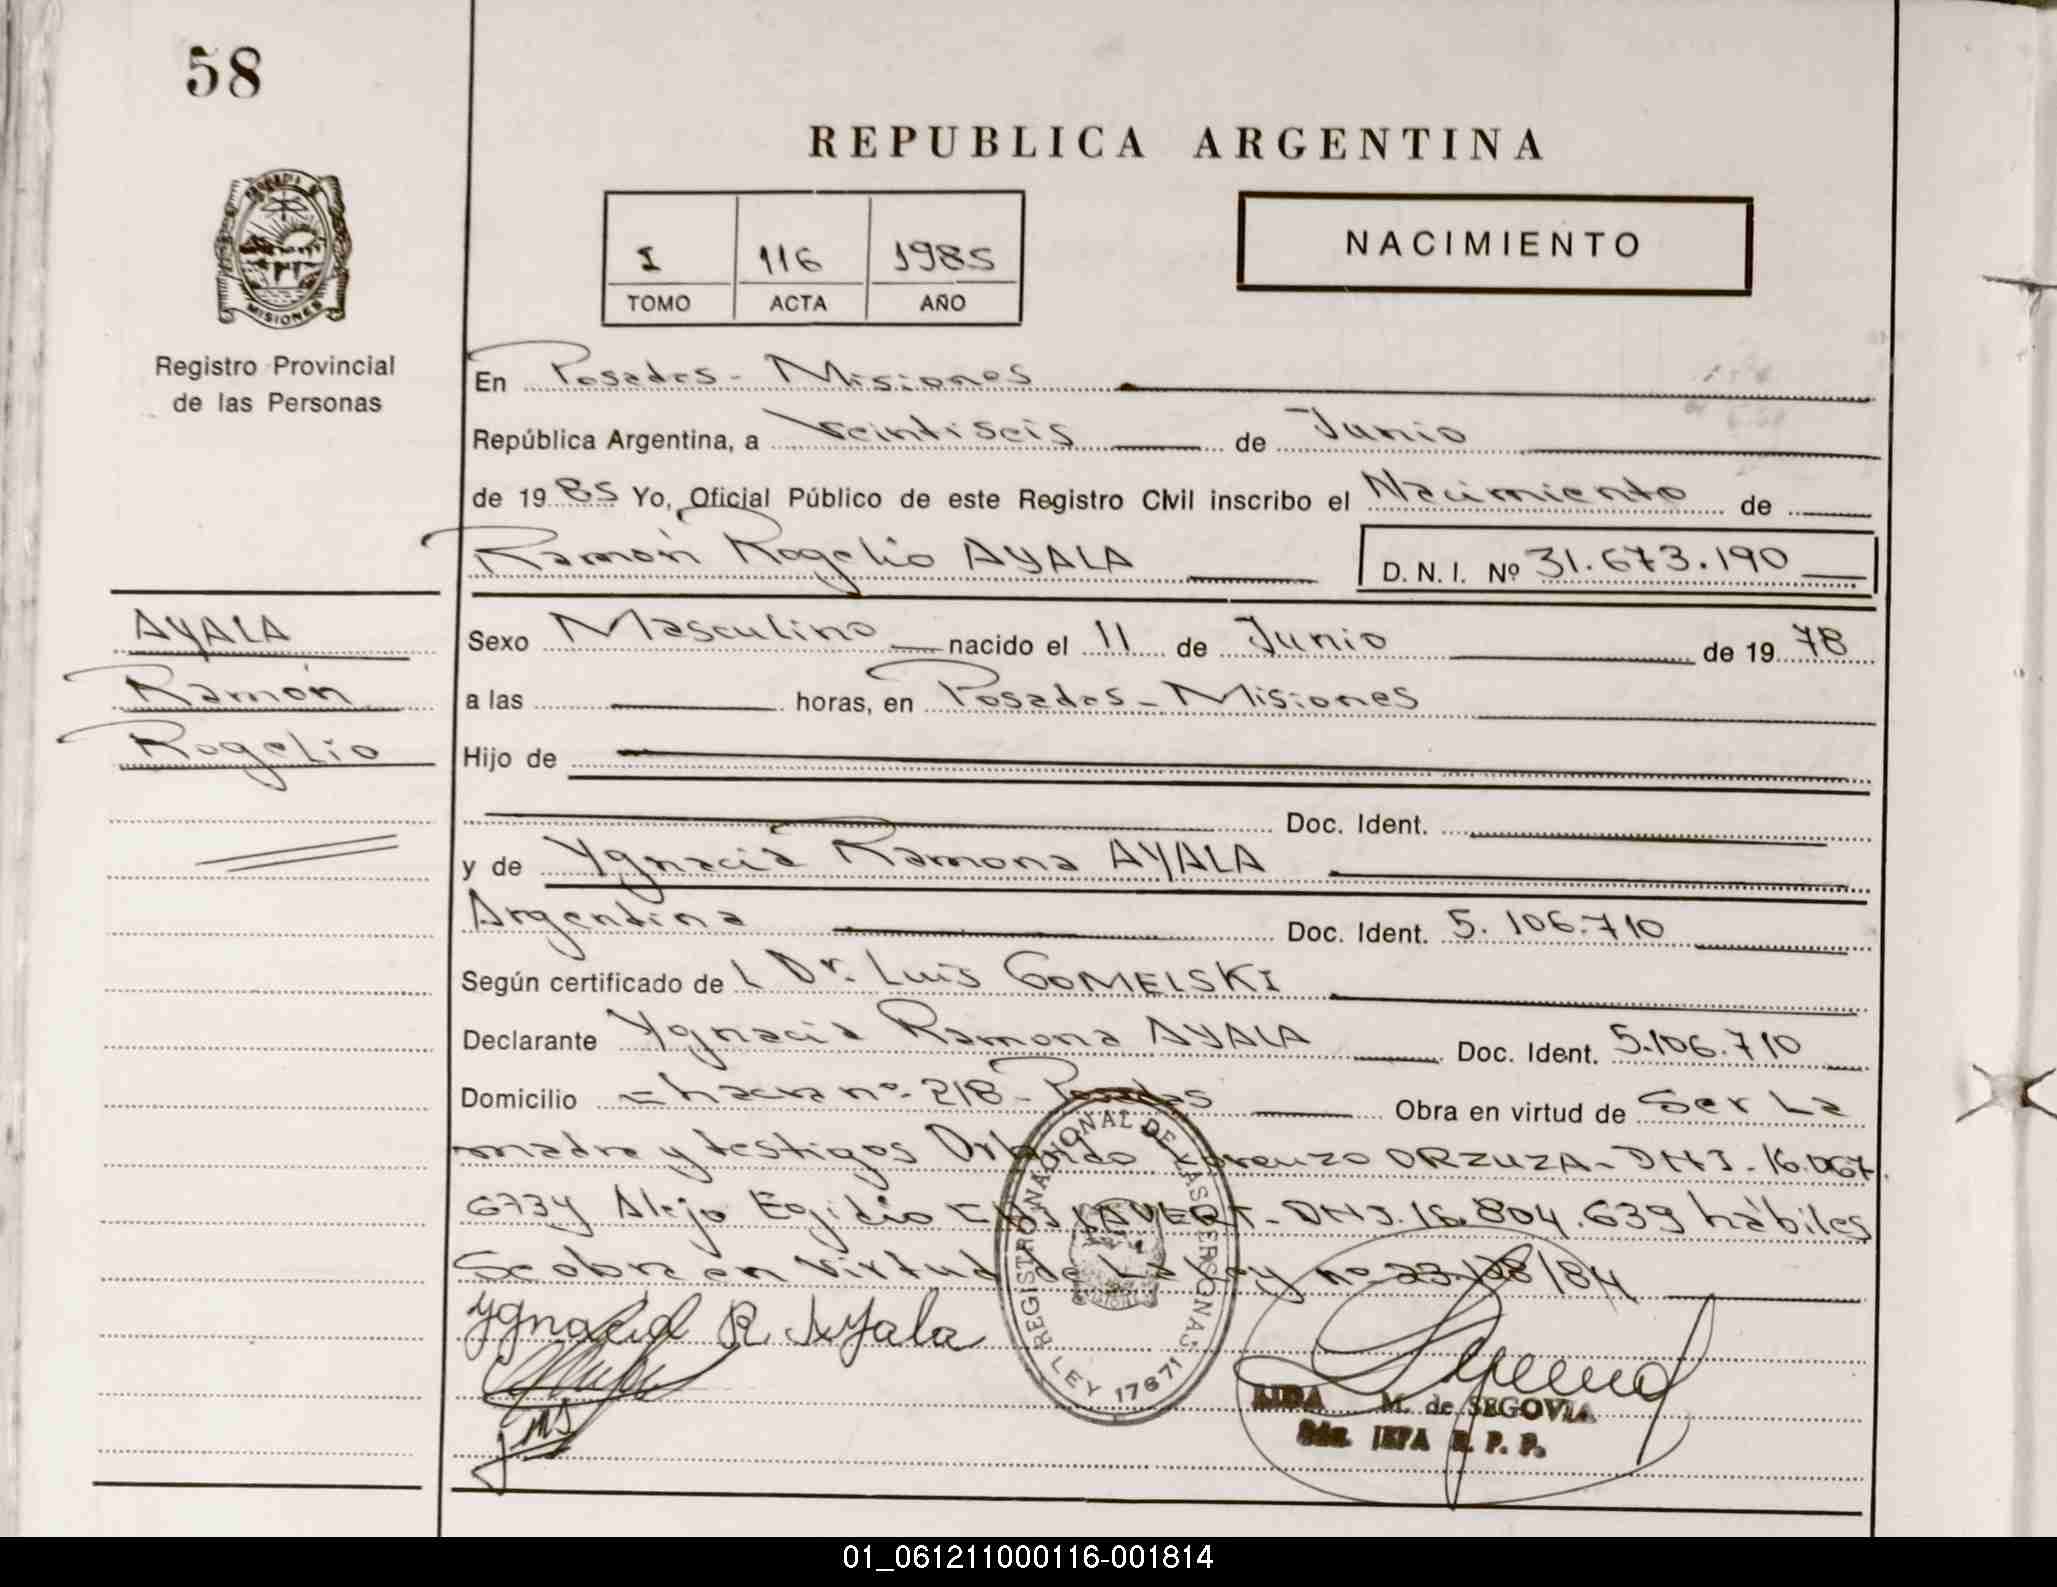 58
REPUBLICA ARGENTINA
PROVINCIA DE
MISIONES
I 116 1985
TOMO ACTA AÑO
NACIMIENTO
Registro Provincial
de las Personas
En Posadas - Misiones
República Argentina, a veintiseis de Junio
de 1985 Yo, Oficial Público de este Registro Civil inscribo el Nacimiento de
Ramón Rogelio AYALA D. N. I. Nº 31.673.190
AYALA
Ramón
Rogelio
Sexo Masculino nacido el 11 de Junio de 1978
a las horas, en Posadas - Misiones
Hijo de
Doc. Ident.
y de Ygnacia Ramona AYALA
Argentina Doc. Ident. 5.106.710
Según certificado de L Dr. Luis GOMELSKI
Declarante Ygnacia Ramona AYALA Doc. Ident. 5.106.710
Domicilio Chacra nº 218 - Posadas Obra en virtud de Ser La
madre y testigos Orlando Lorenzo ORZUZA - DNI. 16.067.
673 y Alejo Egidio - DNI. 16.804.639 hábiles
Se obra en virtud de La Ley nº 23.128/84
Ygnacia R. Ayala
REGISTRO NACIONAL DE LAS PERSONAS
LEY 17671
LIDA M. de SEGOVIA
JEFA R. P. P.
01_061211000116-001814